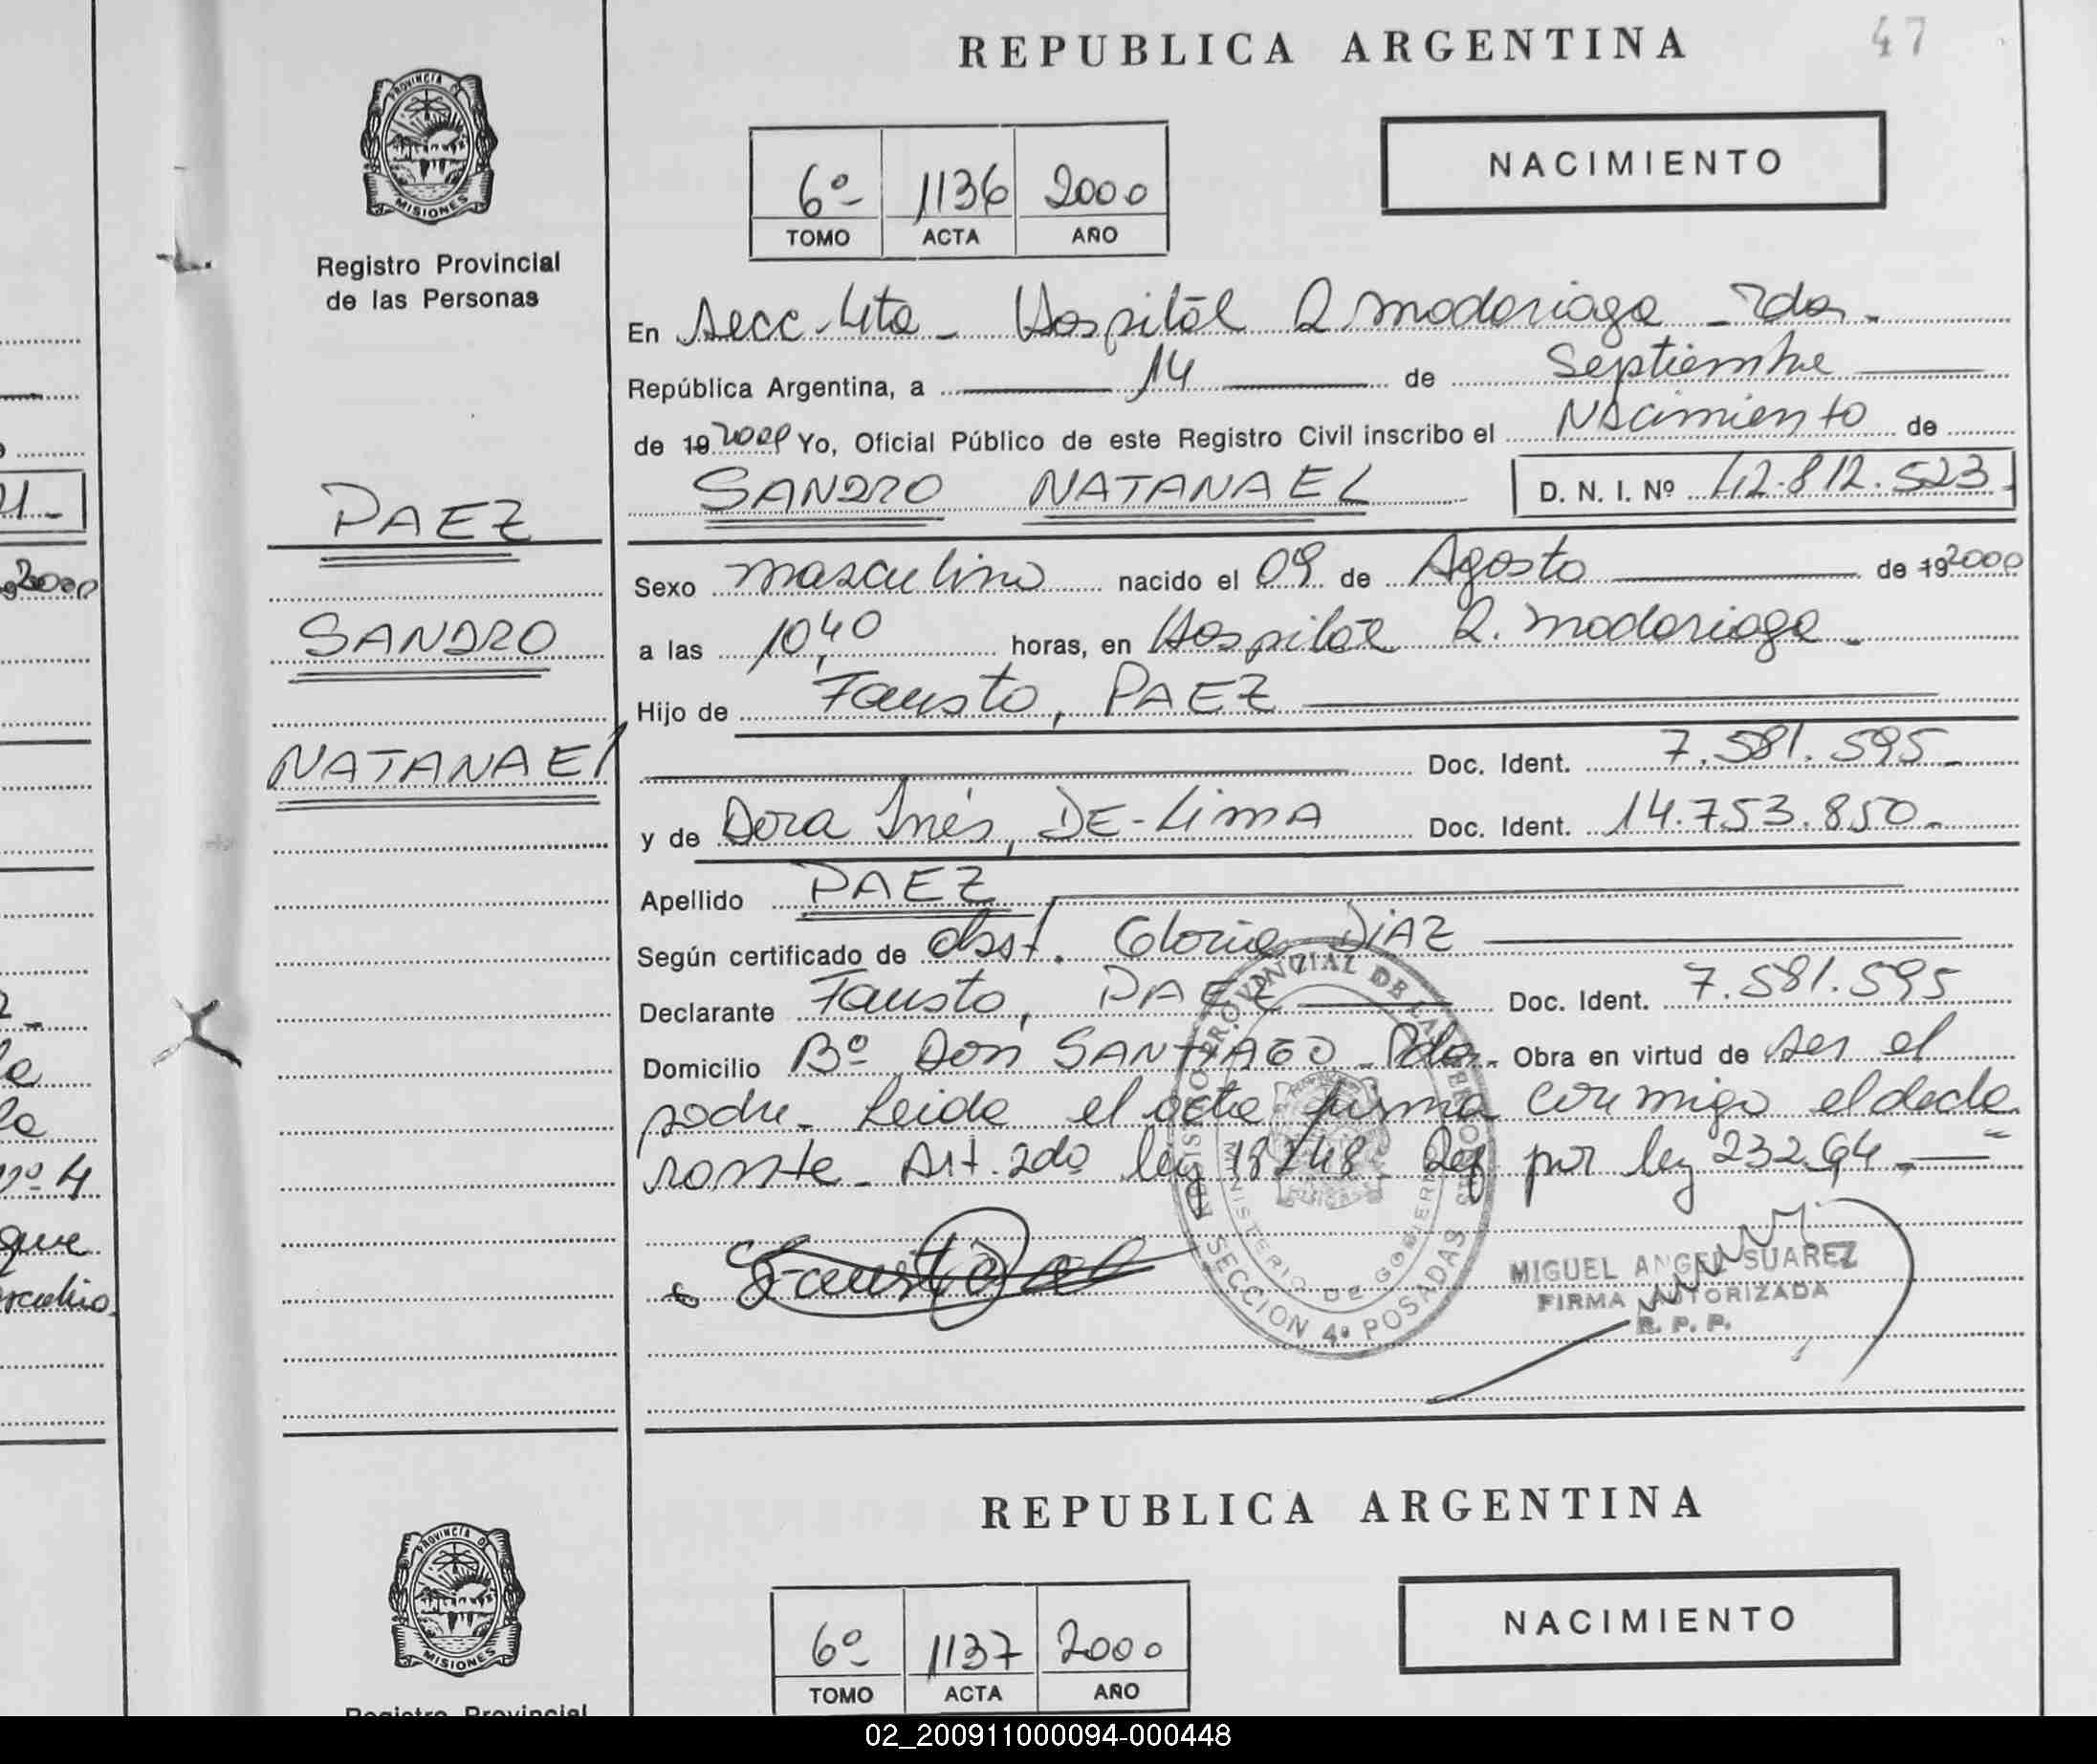 47
REPUBLICA ARGENTINA
NACIMIENTO
6º 1136 2000
TOMO ACTA AÑO
PROVINCIA DE MISIONES
Registro Provincial
de las Personas
En Secc. 4ta - Hospital R Madariaga - Pdas.
República Argentina, a 14 de Septiembre
de 19 2000 Yo, Oficial Público de este Registro Civil inscribo el Nacimiento de
SANDRO NATANAEL D. N. I. Nº 42.812.523.
PAEZ
SANDRO
NATANAEl
Sexo masculino nacido el 09 de Agosto de 19 2000
a las 10,40 horas, en Hospital R. Madariaga -
Hijo de Fausto, PAEZ
Doc. Ident. 7.581.595-
y de Dora Inés, DE-LimA Doc. Ident. 14.753.850-
Apellido PAEZ
Según certificado de obst. Gloria DiAZ
Declarante Fausto, PAEZ Doc. Ident. 7.581.595
Domicilio Bº Don SANTIAGO - Pdas. Obra en virtud de ser el
padre - Leida el acta firma conmigo el decla
rante - Art. 2do ley 18248 Ref por ley 23264 -
REGISTRO PROVINCIAL DE LAS PERSONAS
MINISTERIO DE GOBIERNO
SECCION 4ª POSADAS
MIGUEL ANGEL SUAREZ
FIRMA AUTORIZADA
R. P. P.
REPUBLICA ARGENTINA
NACIMIENTO
6º 1137 2000
TOMO ACTA AÑO
PROVINCIA DE MISIONES
Registro Provincial
2000
nº 4
que
02_200911000094-000448